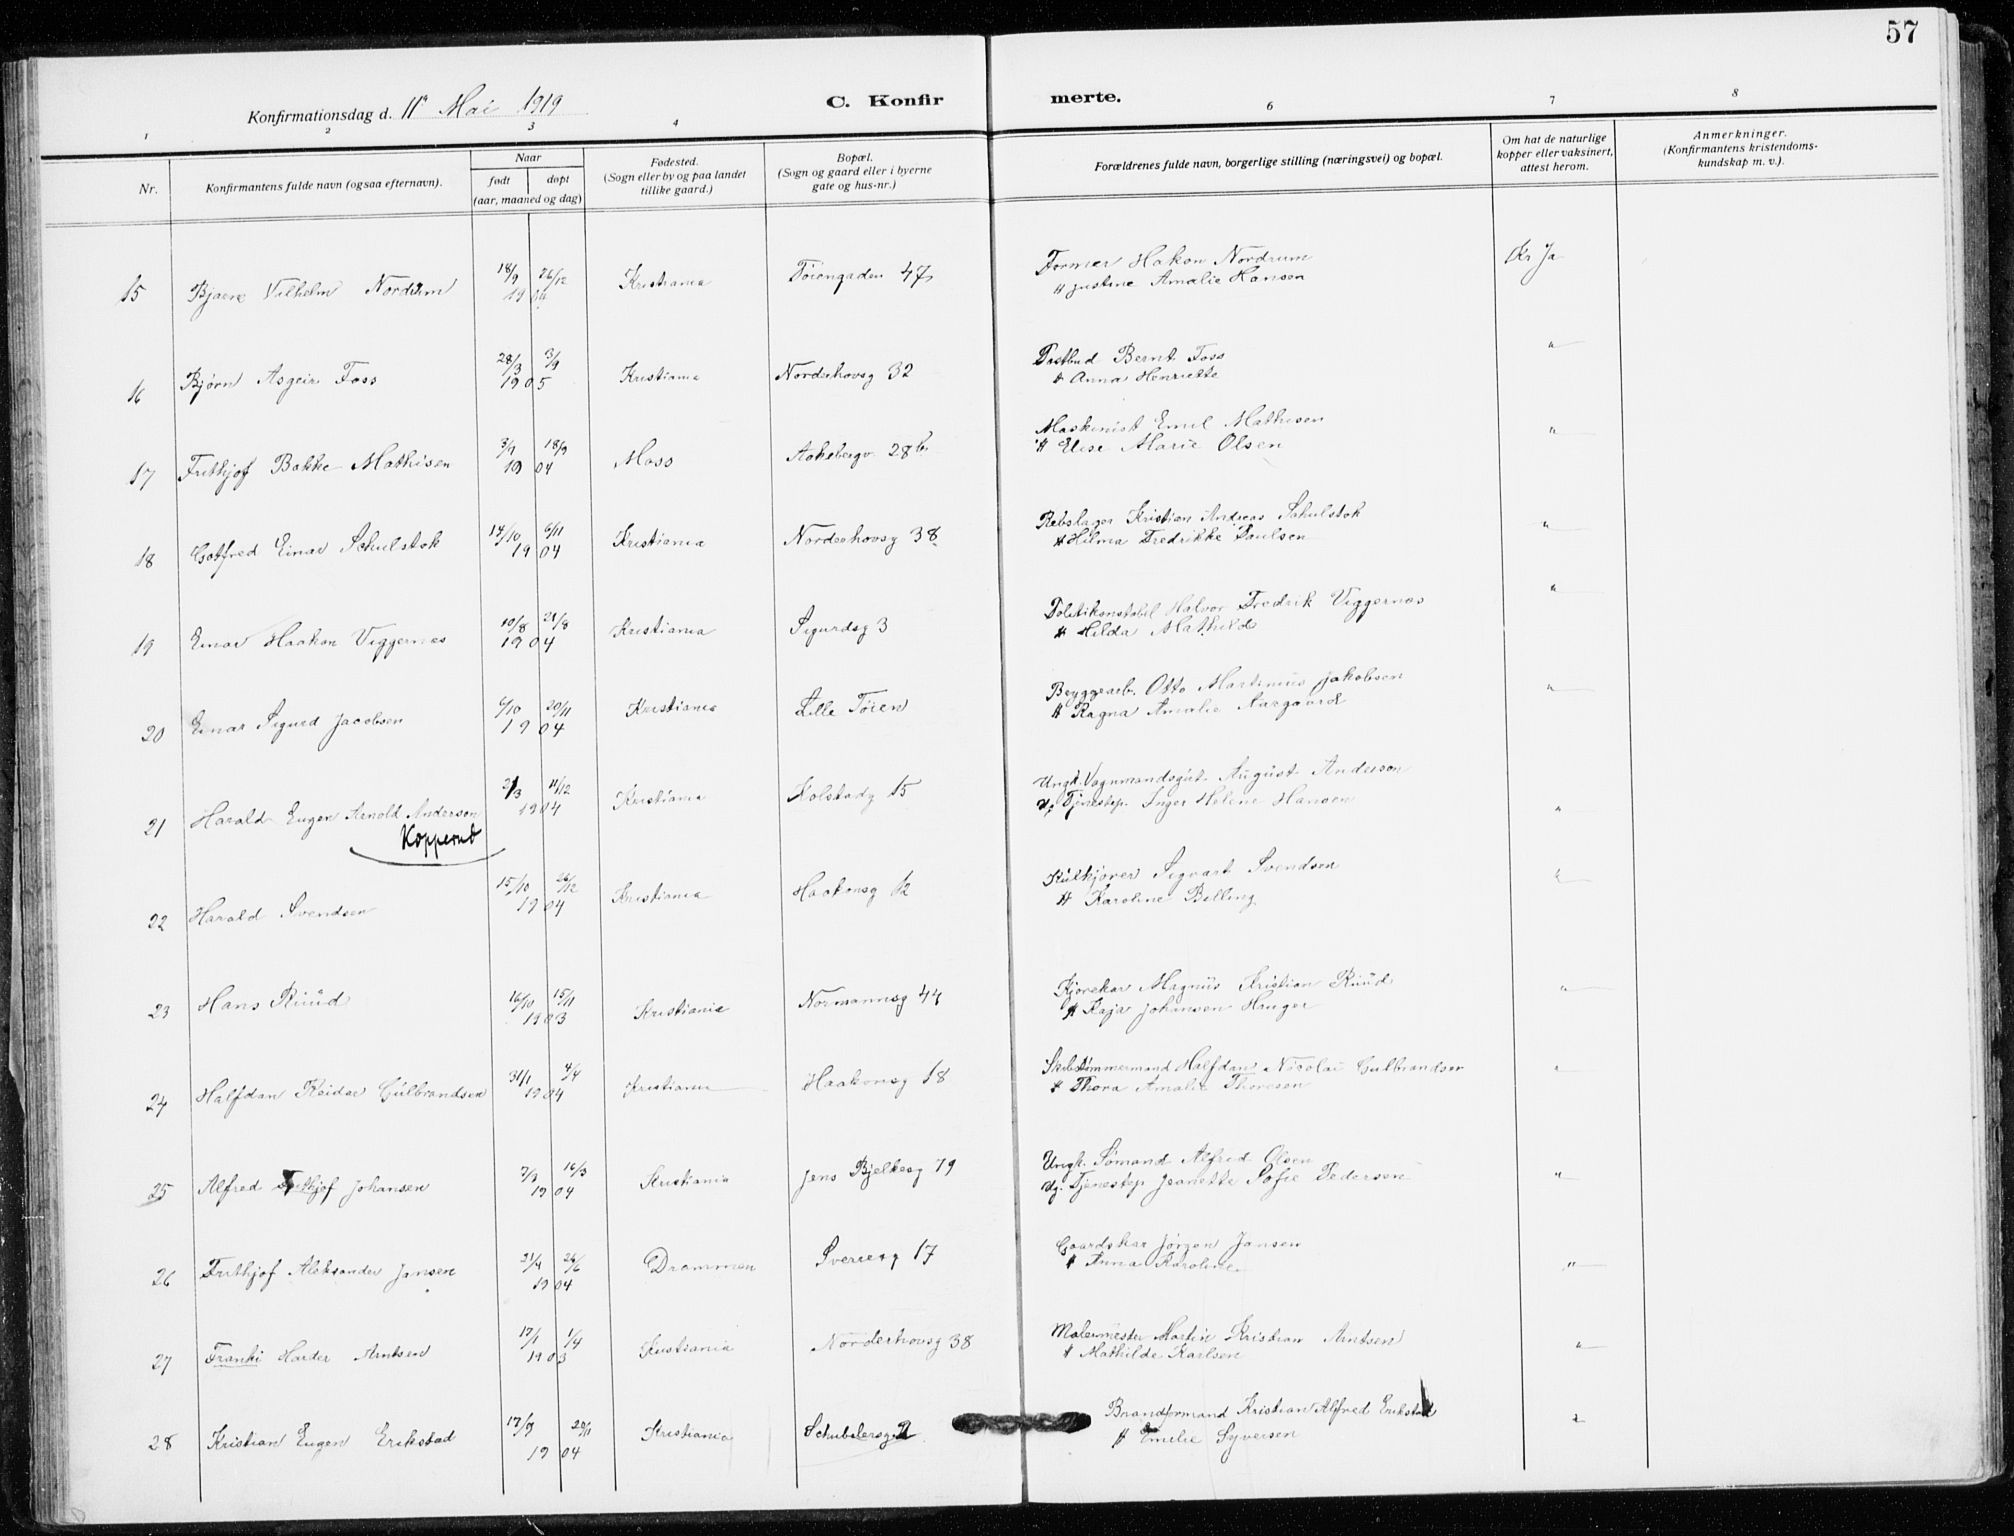 57
Konfirmationsdag d. 11te Mai 1919
C. Konfirmerte.
1 2 3 4 6 7 8
Nr.
Konfirmantens fulde navn (ogsaa efternavn).
Naar
født døpt
(aar, maaned og dag)
Fødested.
(Sogn eller by og paa landet
tillike gaard.)
Bopæl.
(Sogn og gaard eller i byerne
gate og hus-nr.)
Forældrenes fulde navn, borgerlige stilling (næringsvei) og bopæl.
Om hat de naturlige
kopper eller vaksinert,
attest herom.
Anmerkninger.
(Konfirmantens kristendoms-
kundskap m. v.).
15 Bjarne Vilhelm Nordrum 18/9 26/12 1904 Kristiania Tøiengaden 47 Former Hakon Nordrum Ja
H Justine Amalie Hansen
16 Bjørn Asgeir Foss 28/3 3/9 1905 Kristiania Norderhovsg 32 Postbud Bernt Foss "
H Anna Henriette
17 Frithjof Bakke Mathisen 18/9 1904 Moss Aakebergv. 28b Maskinist Emil Mathisen "
H Elise Marie Olsen
18 Gotfred Einar Schulstok 14/10 6/11 1904 Kristiania Norderhovsg 38 Rebslager Kristian Andreas Schulstok "
H Hilma Fredrikke Paulsen
19 Einar Haakon Viggernes 10/8 21/8 1904 Kristiania Sigurdsg 3 Politikonstabel Halvor Fredrik Viggernes "
H Hilda Mathild
20 Einar Sigurd Jacobsen 6/10 20/11 1904 Kristiania Lille Tøien Bryggearb. Otto Martinius Jakobsen "
H Ragna Amalie Aargaard
21 Harald Eugen Arnold Anderson 11/12 1904 Kristiania Kolstadg 15 Ungk. Vognmandsgut August Anderson "
Ug. Tjenestep. Inger Helene Hansen
Kopperud
22 Harald Svendsen 15/10 26/12 1904 Kristiania Haakonsg 12 Kulkjører Sigvart Svendsen "
H Karoline Belling
23 Hans Ruud 16/10 15/11 1903 Kristiania Normannsg 44 Kjørekar Magnus Kristian Ruud "
H Kaja Johansen Hauger
24 Halfdan Reidar Gulbrandsen 31/1 4/4 1904 Kristiania Haakonsg 18 Skibstømmermand Halfdan Nicolai Gulbrandsen "
H Thora Amalie Thoresen
25 Alfred Frithjof Johansen 7/3 16/3 1904 Kristiania Jens Bjelkesg 79 Ungk. Sømand Alfred Olsen "
Ug. Tjenestep Jeanette Sofie Pedersen
26 Frithjof Aleksander Jansen 21/4 26/6 1904 Drammen Sverresg 17 Gaardskar Jørgen Jansen "
H Anna Karoline
27 Franki Harder Arntsen 17/1 1/4 1903 Kristiania Norderhovsg 38 Malermester Martin Kristian Arntsen "
H Mathilde Karlsen
28 Kristian Eugen Erikstad 17/9 20/11 1904 Kristiania Schubelersg 2 Brandformand Kristian Alfred Erikstad "
H Emilie Syversen